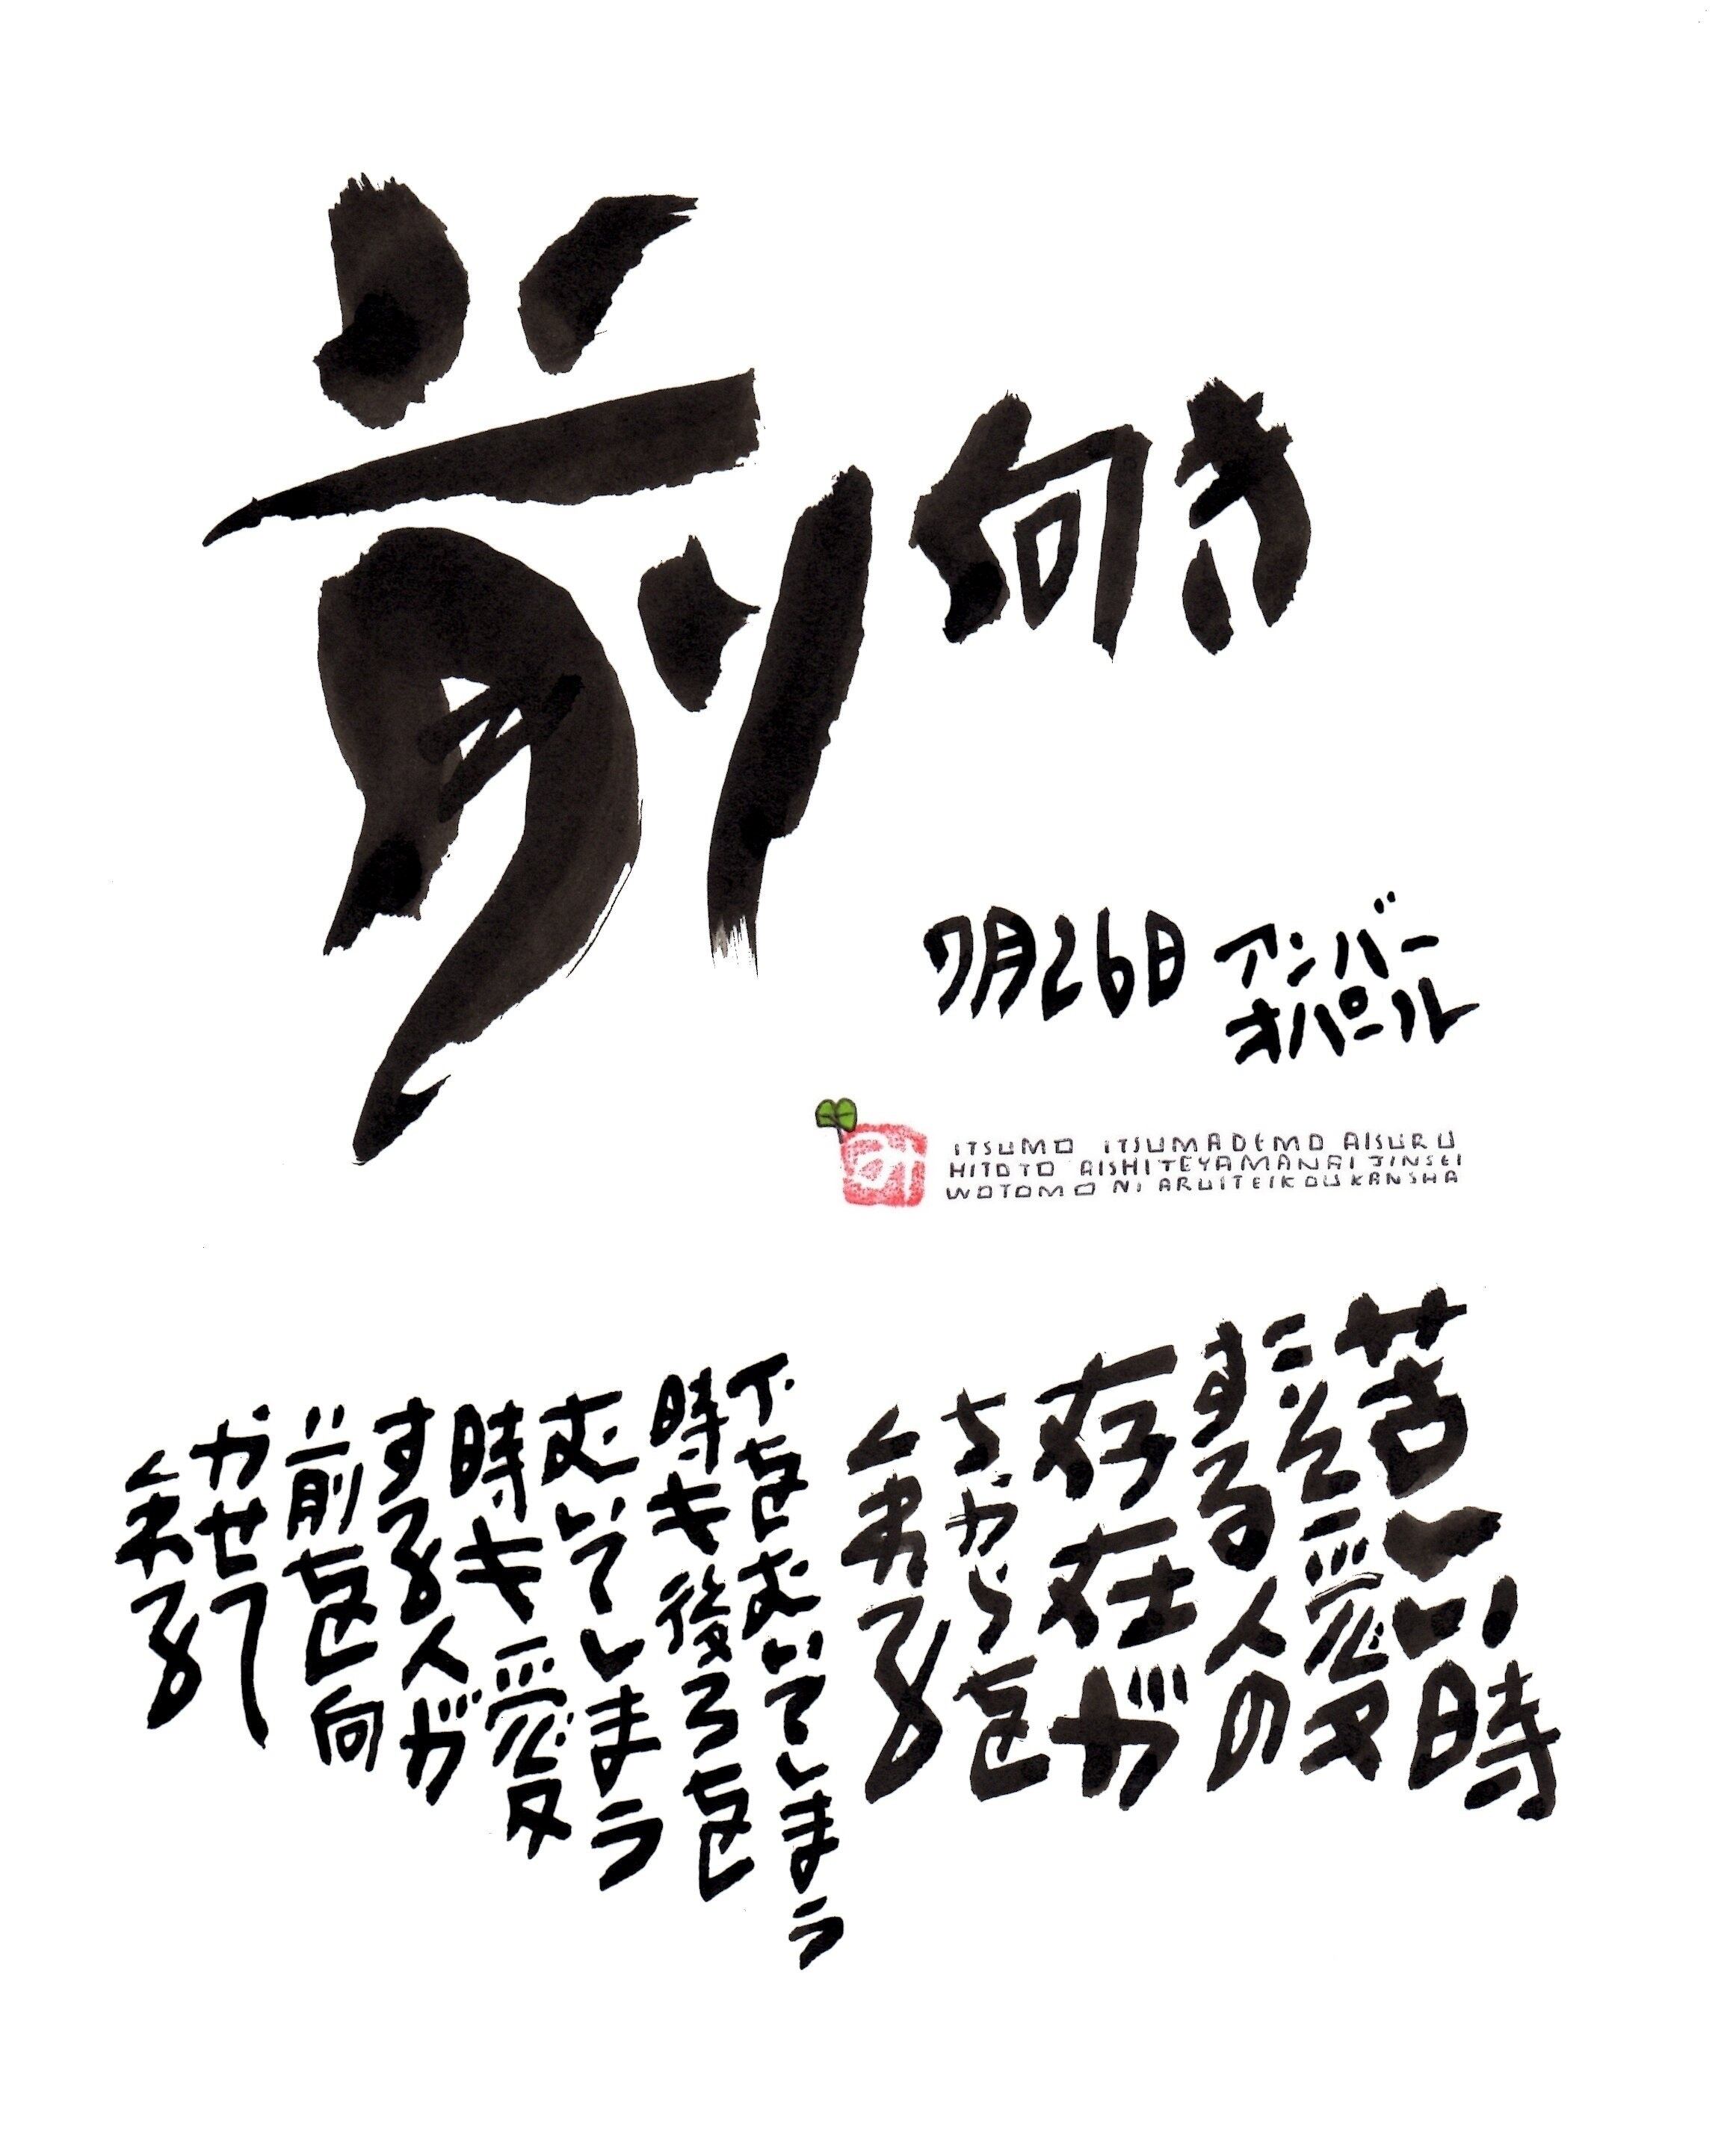 前向き
7月26日 アンバー
オパール
ITSUMO ITSUMADEMO AISURU
HITOTO AISHITEYAMANAI JINSEI
WOTOMO NI ARUITEIKOU KANSHA
苦しい時
こそ愛
する人の
存在が
ちからを
くれる
下をむいてしまう
時も後ろを
むいてしまう
時も愛
する人が
前を向
かせて
くれる